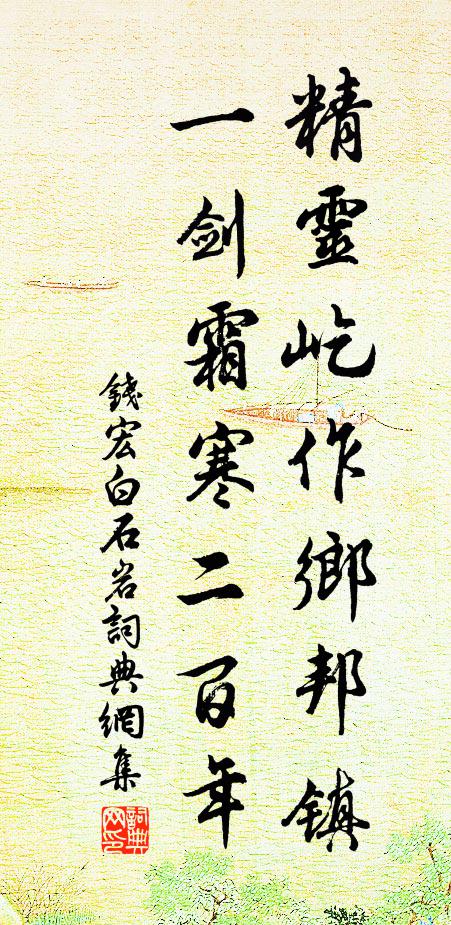 精靈屹作鄉邦鎮
一劍霜寒二百年
錢宏白石岩詞典網集
詞典網印